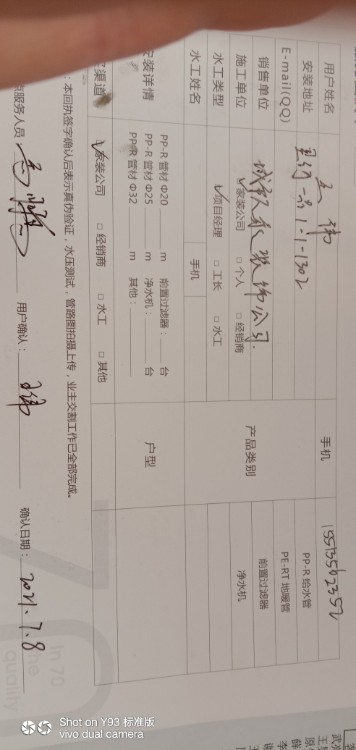 用户姓名 手机 15513562352
安装地址 1-1-1302 PP-R 给水管
E-mail(QQ) PE-RT 地暖管
销售单位 装饰公司 产品类别 前置过滤器
施工单位 ☑家装公司 □ 个人 □ 经销商 净水机
水工类型 ☑项目经理 □ 工长 □ 水工
水工姓名 手机
装详情 PP-R 管材 Φ20 m 前置过滤器： 台 户型
PP-R 管材 Φ25 m 净水机： 台
PP-R 管材 Φ32 m 其他：
渠道 ☑家装公司 □ 经销商 □ 水工 □ 其他
：本回执签字确认后表示真伪验证，水压测试，管路图拍摄上传，业主交割工作已全部完成。
服务人员 用户确认： 确认日期： 2021.7.8
In 70
the
quality
Shot on Y93 标准版
vivo dual camera